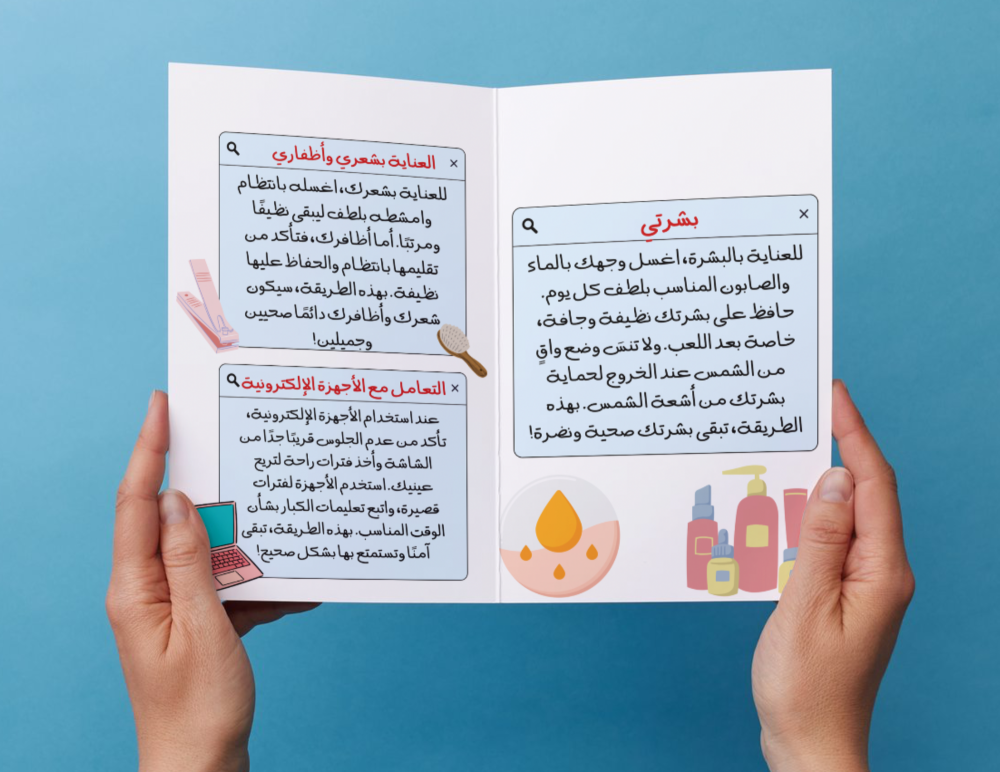 بشرتي
للعناية بالبشرة، اغسل وجهك بالماء
والصابون المناسب بلطف كل يوم.
حافظ على بشرتك نظيفة وجافة،
خاصة بعد اللعب. ولا تنسَ وضع واقٍ
من الشمس عند الخروج لحماية
بشرتك من أشعة الشمس. بهذه
الطريقة، تبقى بشرتك صحية ونضرة!
العناية بشعري وأظفاري
للعناية بشعرك، اغسله بانتظام
وامشطه بلطف ليبقى نظيفًا
ومرتبًا. أما أظافرك، فتأكد من
تقليمها بانتظام والحفاظ عليها
نظيفة. بهذه الطريقة، سيكون
شعرك وأظافرك دائمًا صحيين
وجميلين!
التعامل مع الأجهزة الإلكترونية
عند استخدام الأجهزة الإلكترونية،
تأكد من عدم الجلوس قريبًا جدًا من
الشاشة وأخذ فترات راحة لتريح
عينيك. استخدم الأجهزة لفترات
قصيرة، واتبع تعليمات الكبار بشأن
الوقت المناسب. بهذه الطريقة، تبقى
آمنًا وتستمتع بها بشكل صحيح!